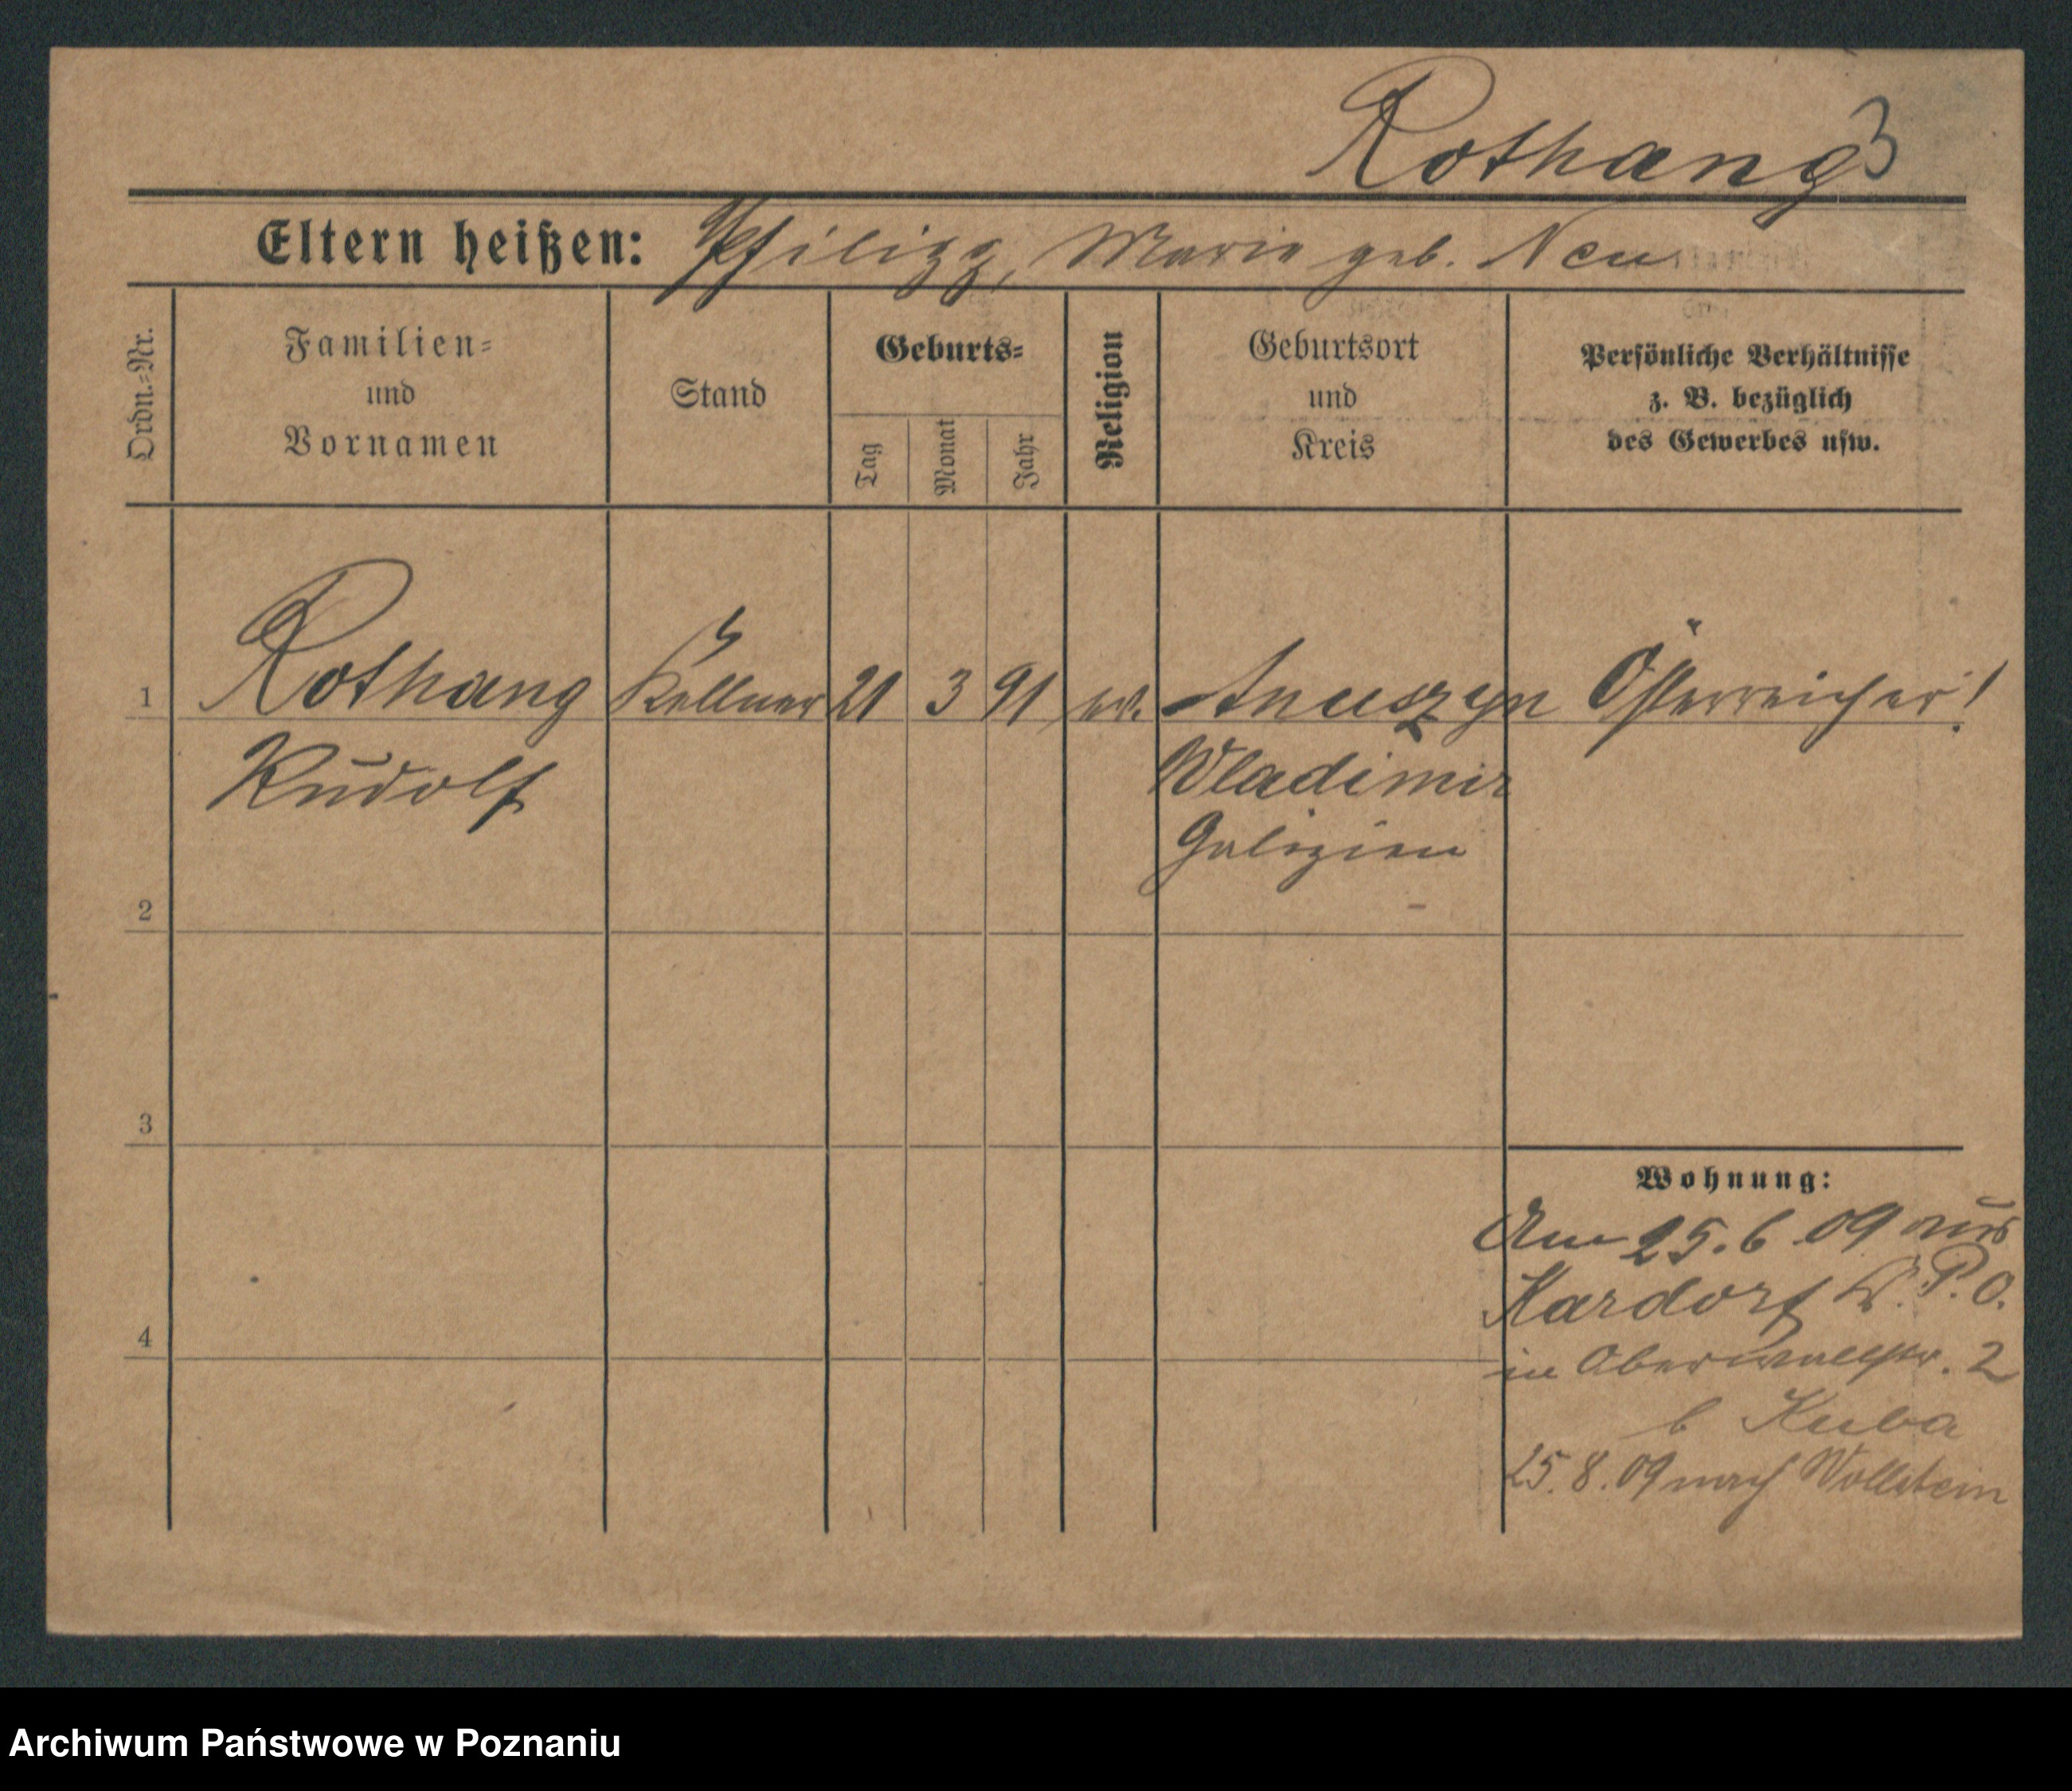 Rothang 3
Eltern heißen: Philipp, Marie geb. Neu
Ordn.=Nr.
Familien= und Vornamen
Stand
Geburts=
Tag
Monat
Jahr
Religion
Geburtsort und Kreis
Persönliche Verhältnisse z. B. bezüglich des Gewerbes usw.
1 Rothang Kellner 21 3 91 ev. Anuszyn Österreicher!
Rudolf Wladimir
Galizien
2
3
4
Wohnung:
Am 25.6 09 aus
Kardorf P. O.
in Oberwallstr. 2
b Kuba
25. 8. 09 nach Wollstein
Archiwum Państwowe w Poznaniu